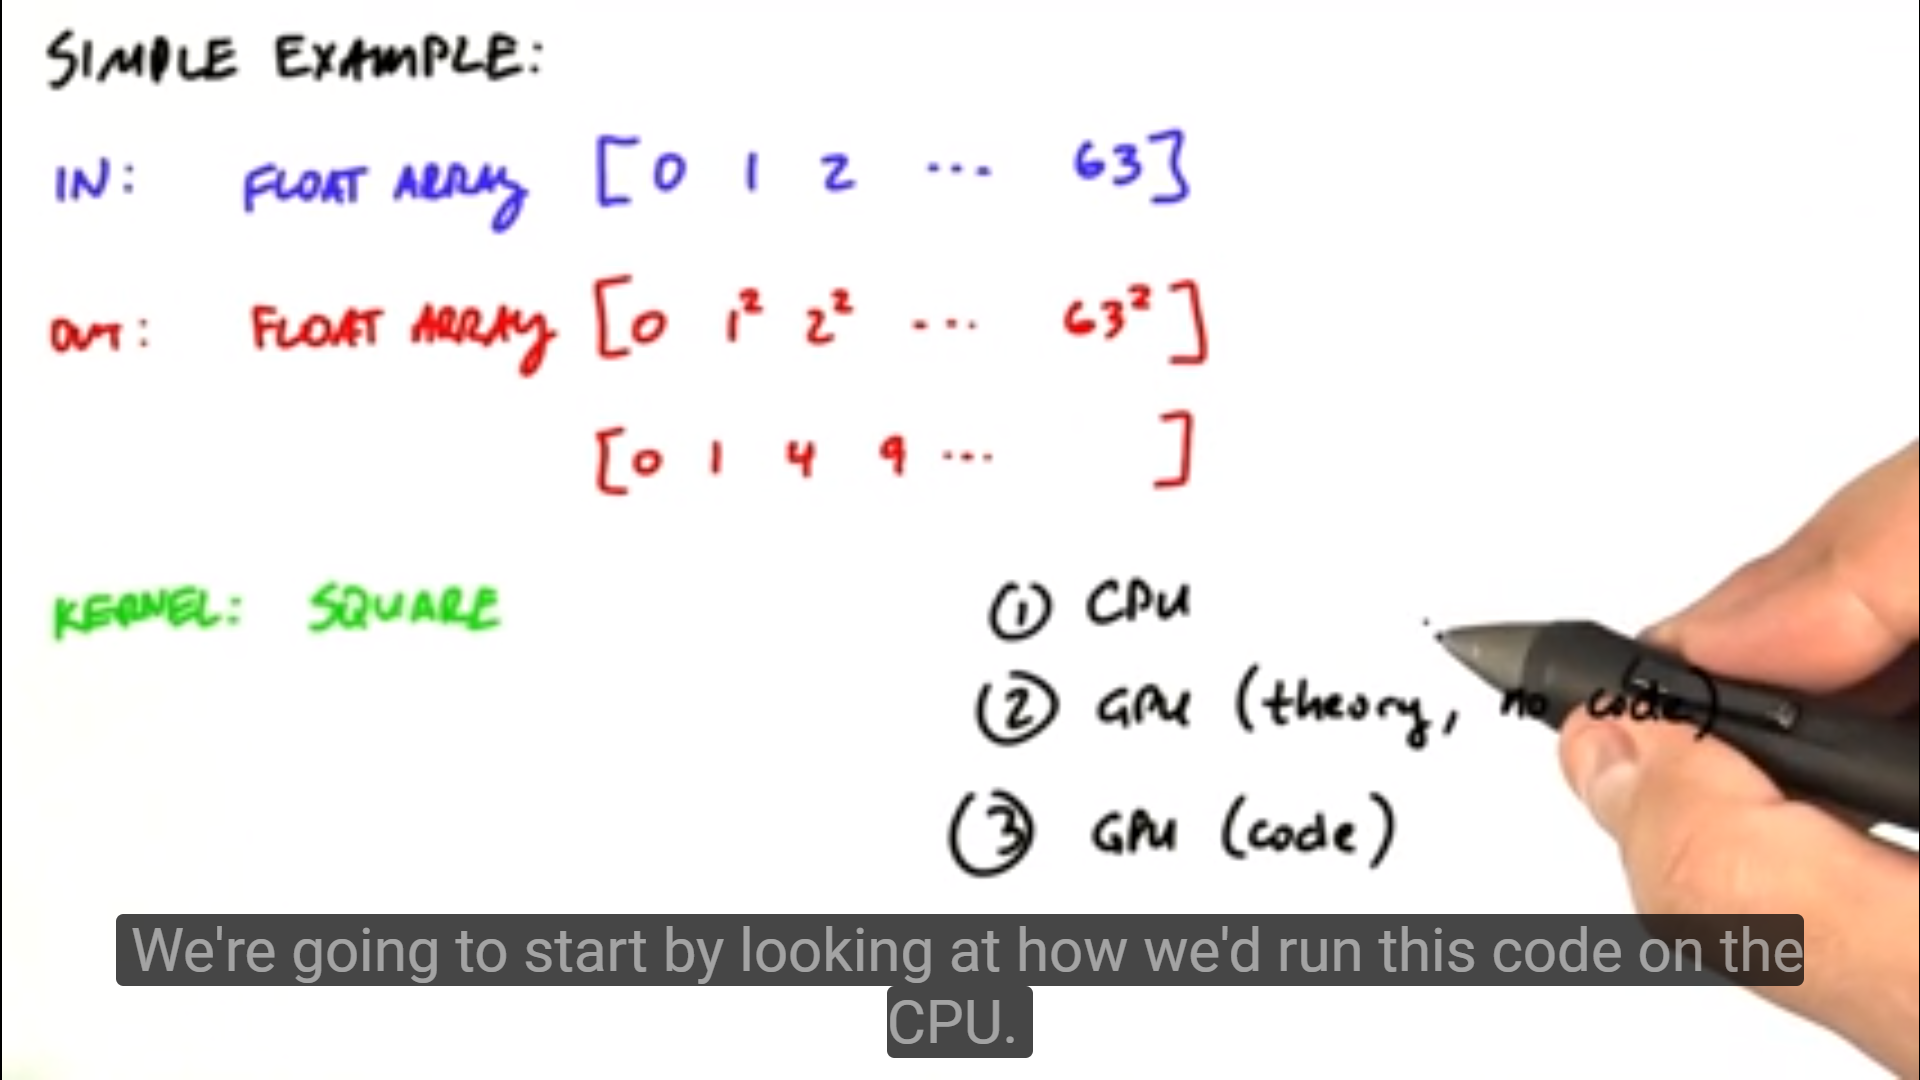 SIMPLE EXAMPLE:
IN: FLOAT ARRAY [0 1 2 ... 63]
OUT: FLOAT ARRAY [0 1² 2² ... 63²]
[0 1 4 9 ... ]
KERNEL: SQUARE
① CPU
② GPU (theory, no code)
③ GPU (code)
We're going to start by looking at how we'd run this code on the
CPU.